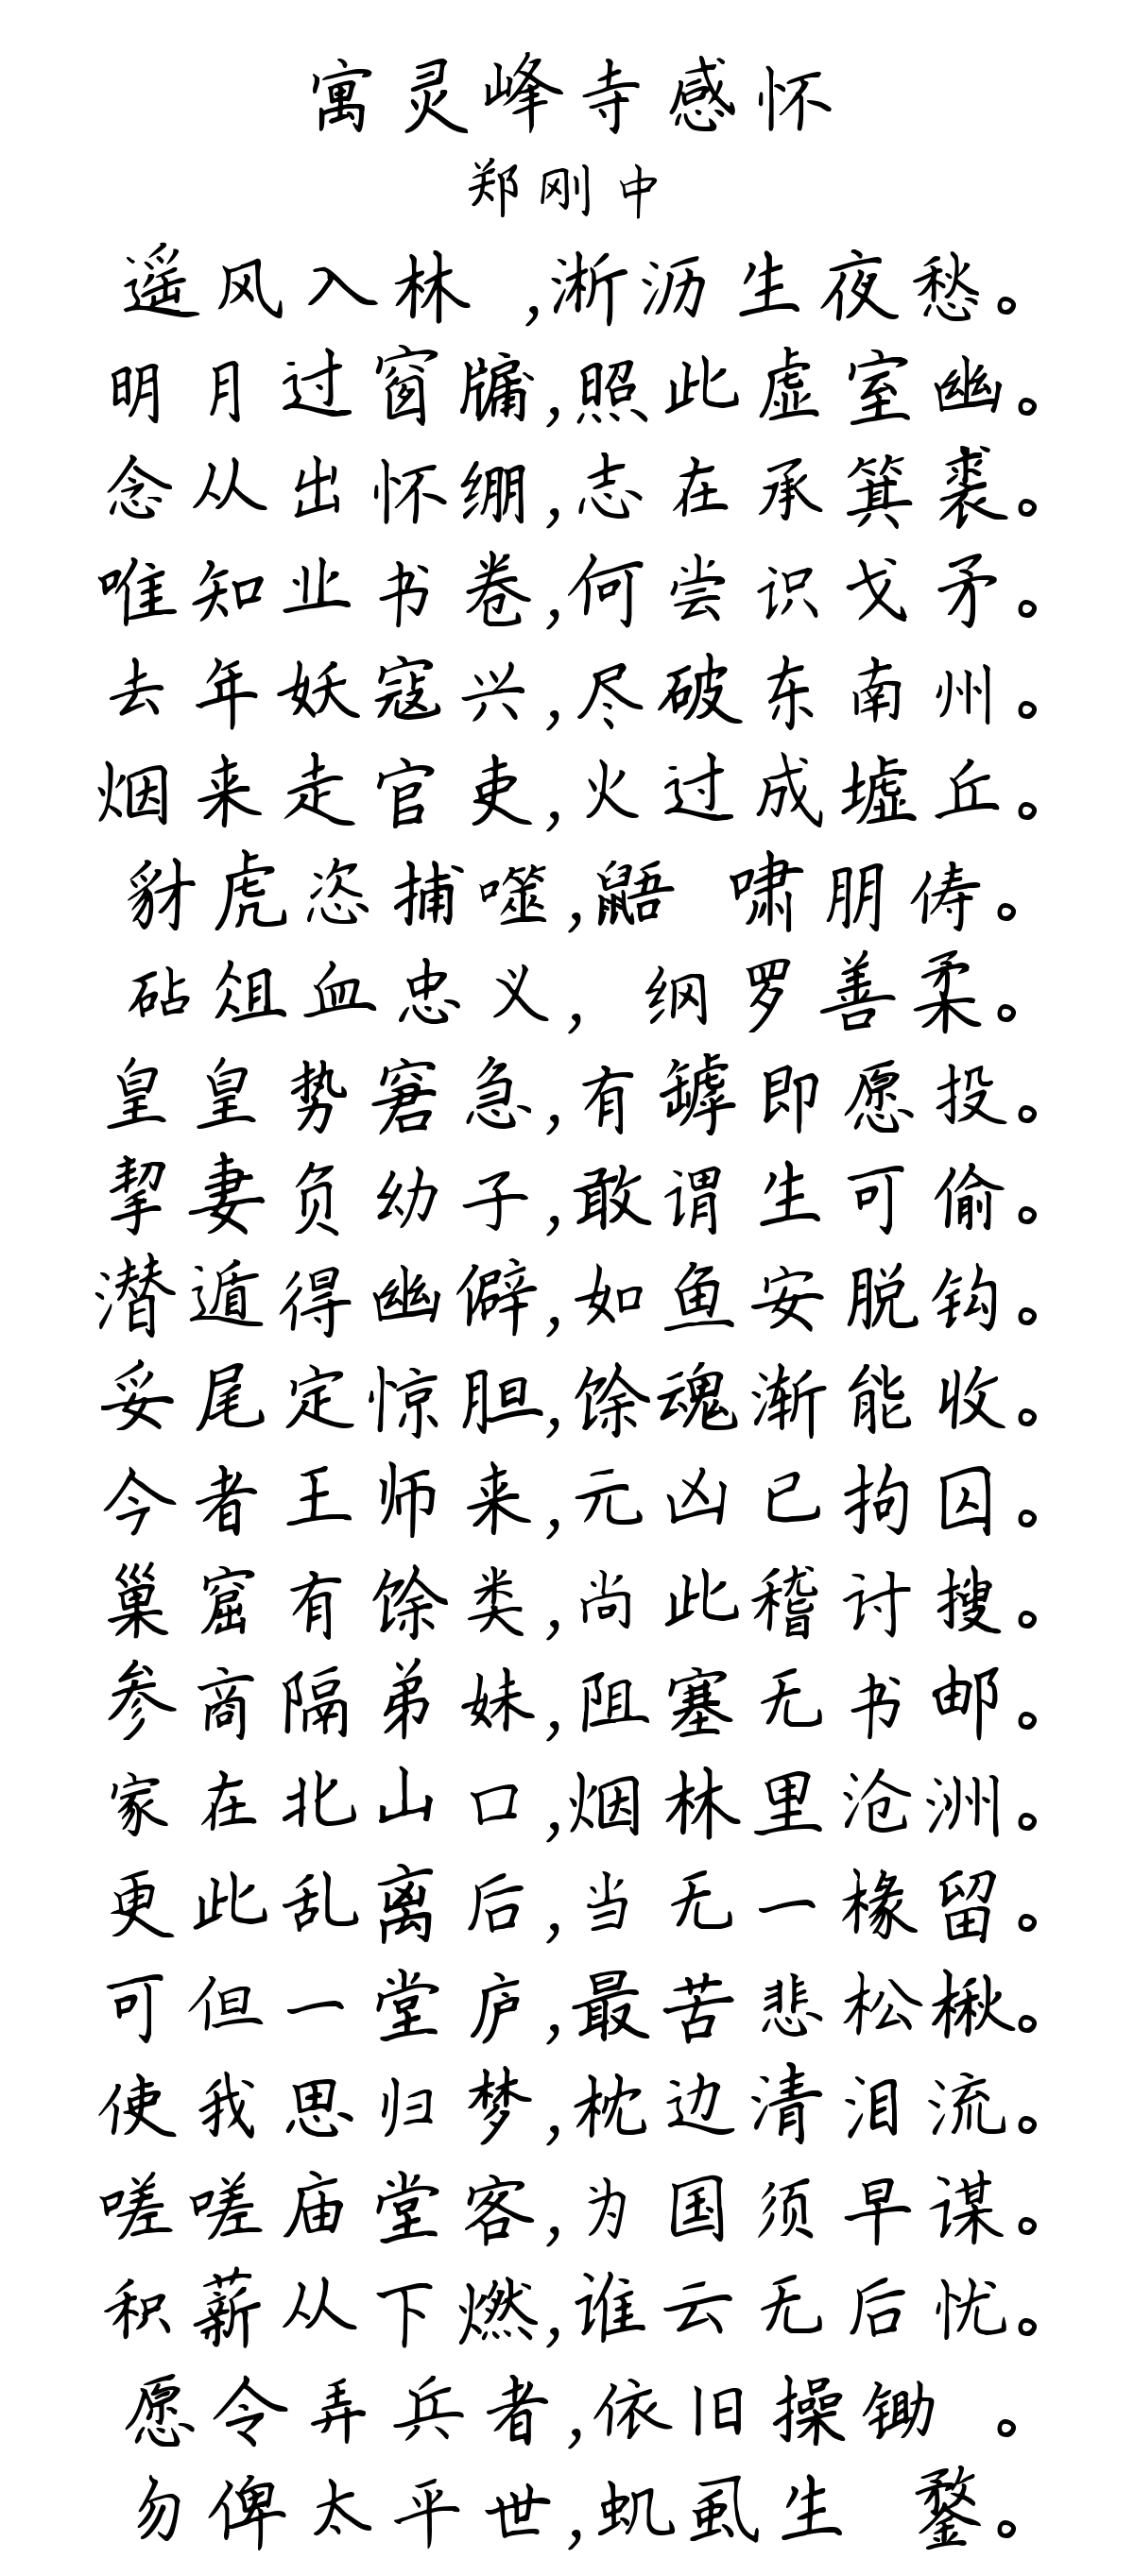 寓灵峰寺感怀
郑刚中
遥风入林 ,淅沥生夜愁。
明月过窗牗,照此虚室幽。
念从出怀绷,志在承箕裘。
唯知业书卷,何尝识戈矛。
去年妖寇兴,尽破东南州。
烟来走官吏,火过成墟丘。
豺虎恣捕噬,鼯 啸朋俦。
砧俎血忠义, 纲罗善柔。
皇皇势窘急,有罅即愿投。
挈妻负幼子,敢谓生可偷。
潜遁得幽僻,如鱼安脱钩。
妥尾定惊胆,馀魂渐能收。
今者王师来,元凶已拘囚。
巢窟有馀类,尚此稽讨搜。
参商隔弟妹,阻塞无书邮。
家在北山口,烟林里沧洲。
更此乱离后,当无一椽留。
可但一堂庐,最苦悲松楸。
使我思归梦,枕边清泪流。
嗟嗟庙堂客,为国须早谋。
积薪从下燃,谁云无后忧。
愿令弄兵者,依旧操锄 。
勿俾太平世,虮虱生 鍪。